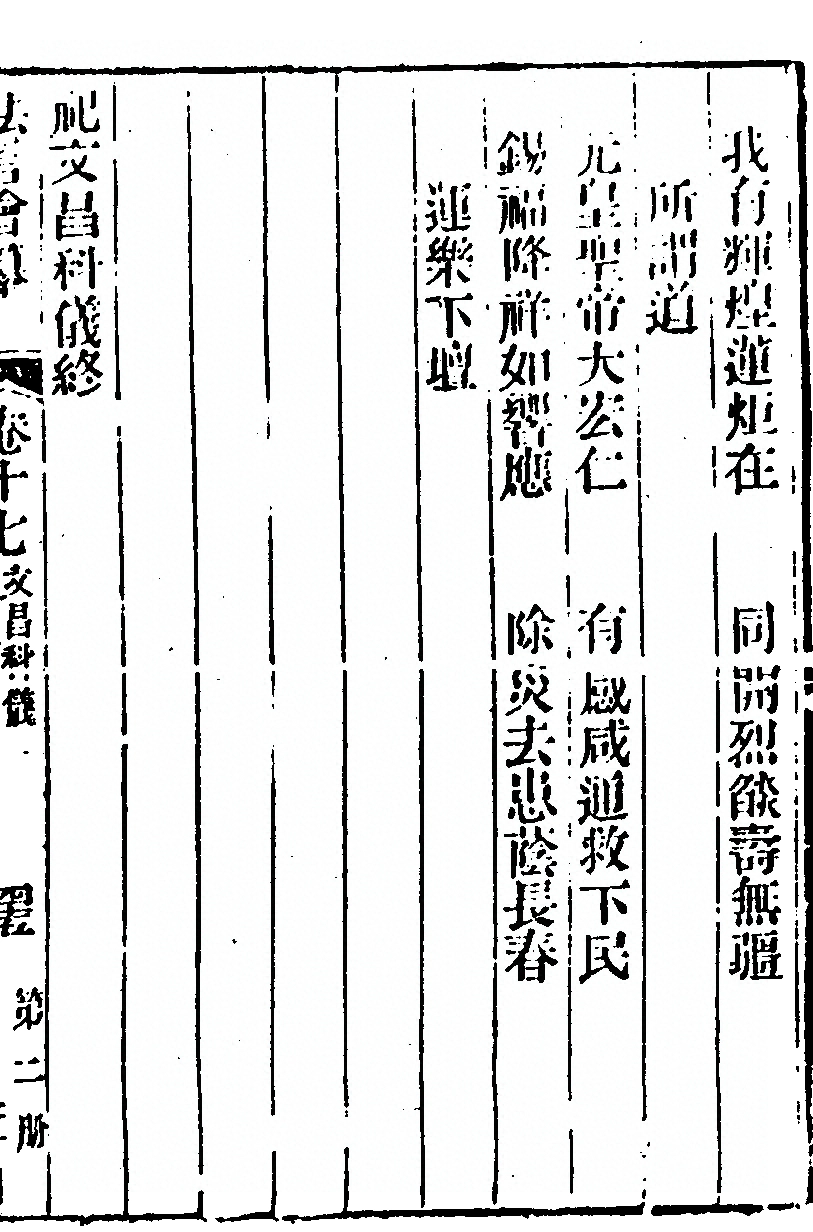 我有輝煌蓮炬在　同開烈燄壽無疆
所謂道
元皇聖帝大宏仁　有感咸通救下民
錫福降祥如響應　除災去患蔭長春
運樂下壇
祀文昌科儀終
卷十七　文昌科儀
第二册